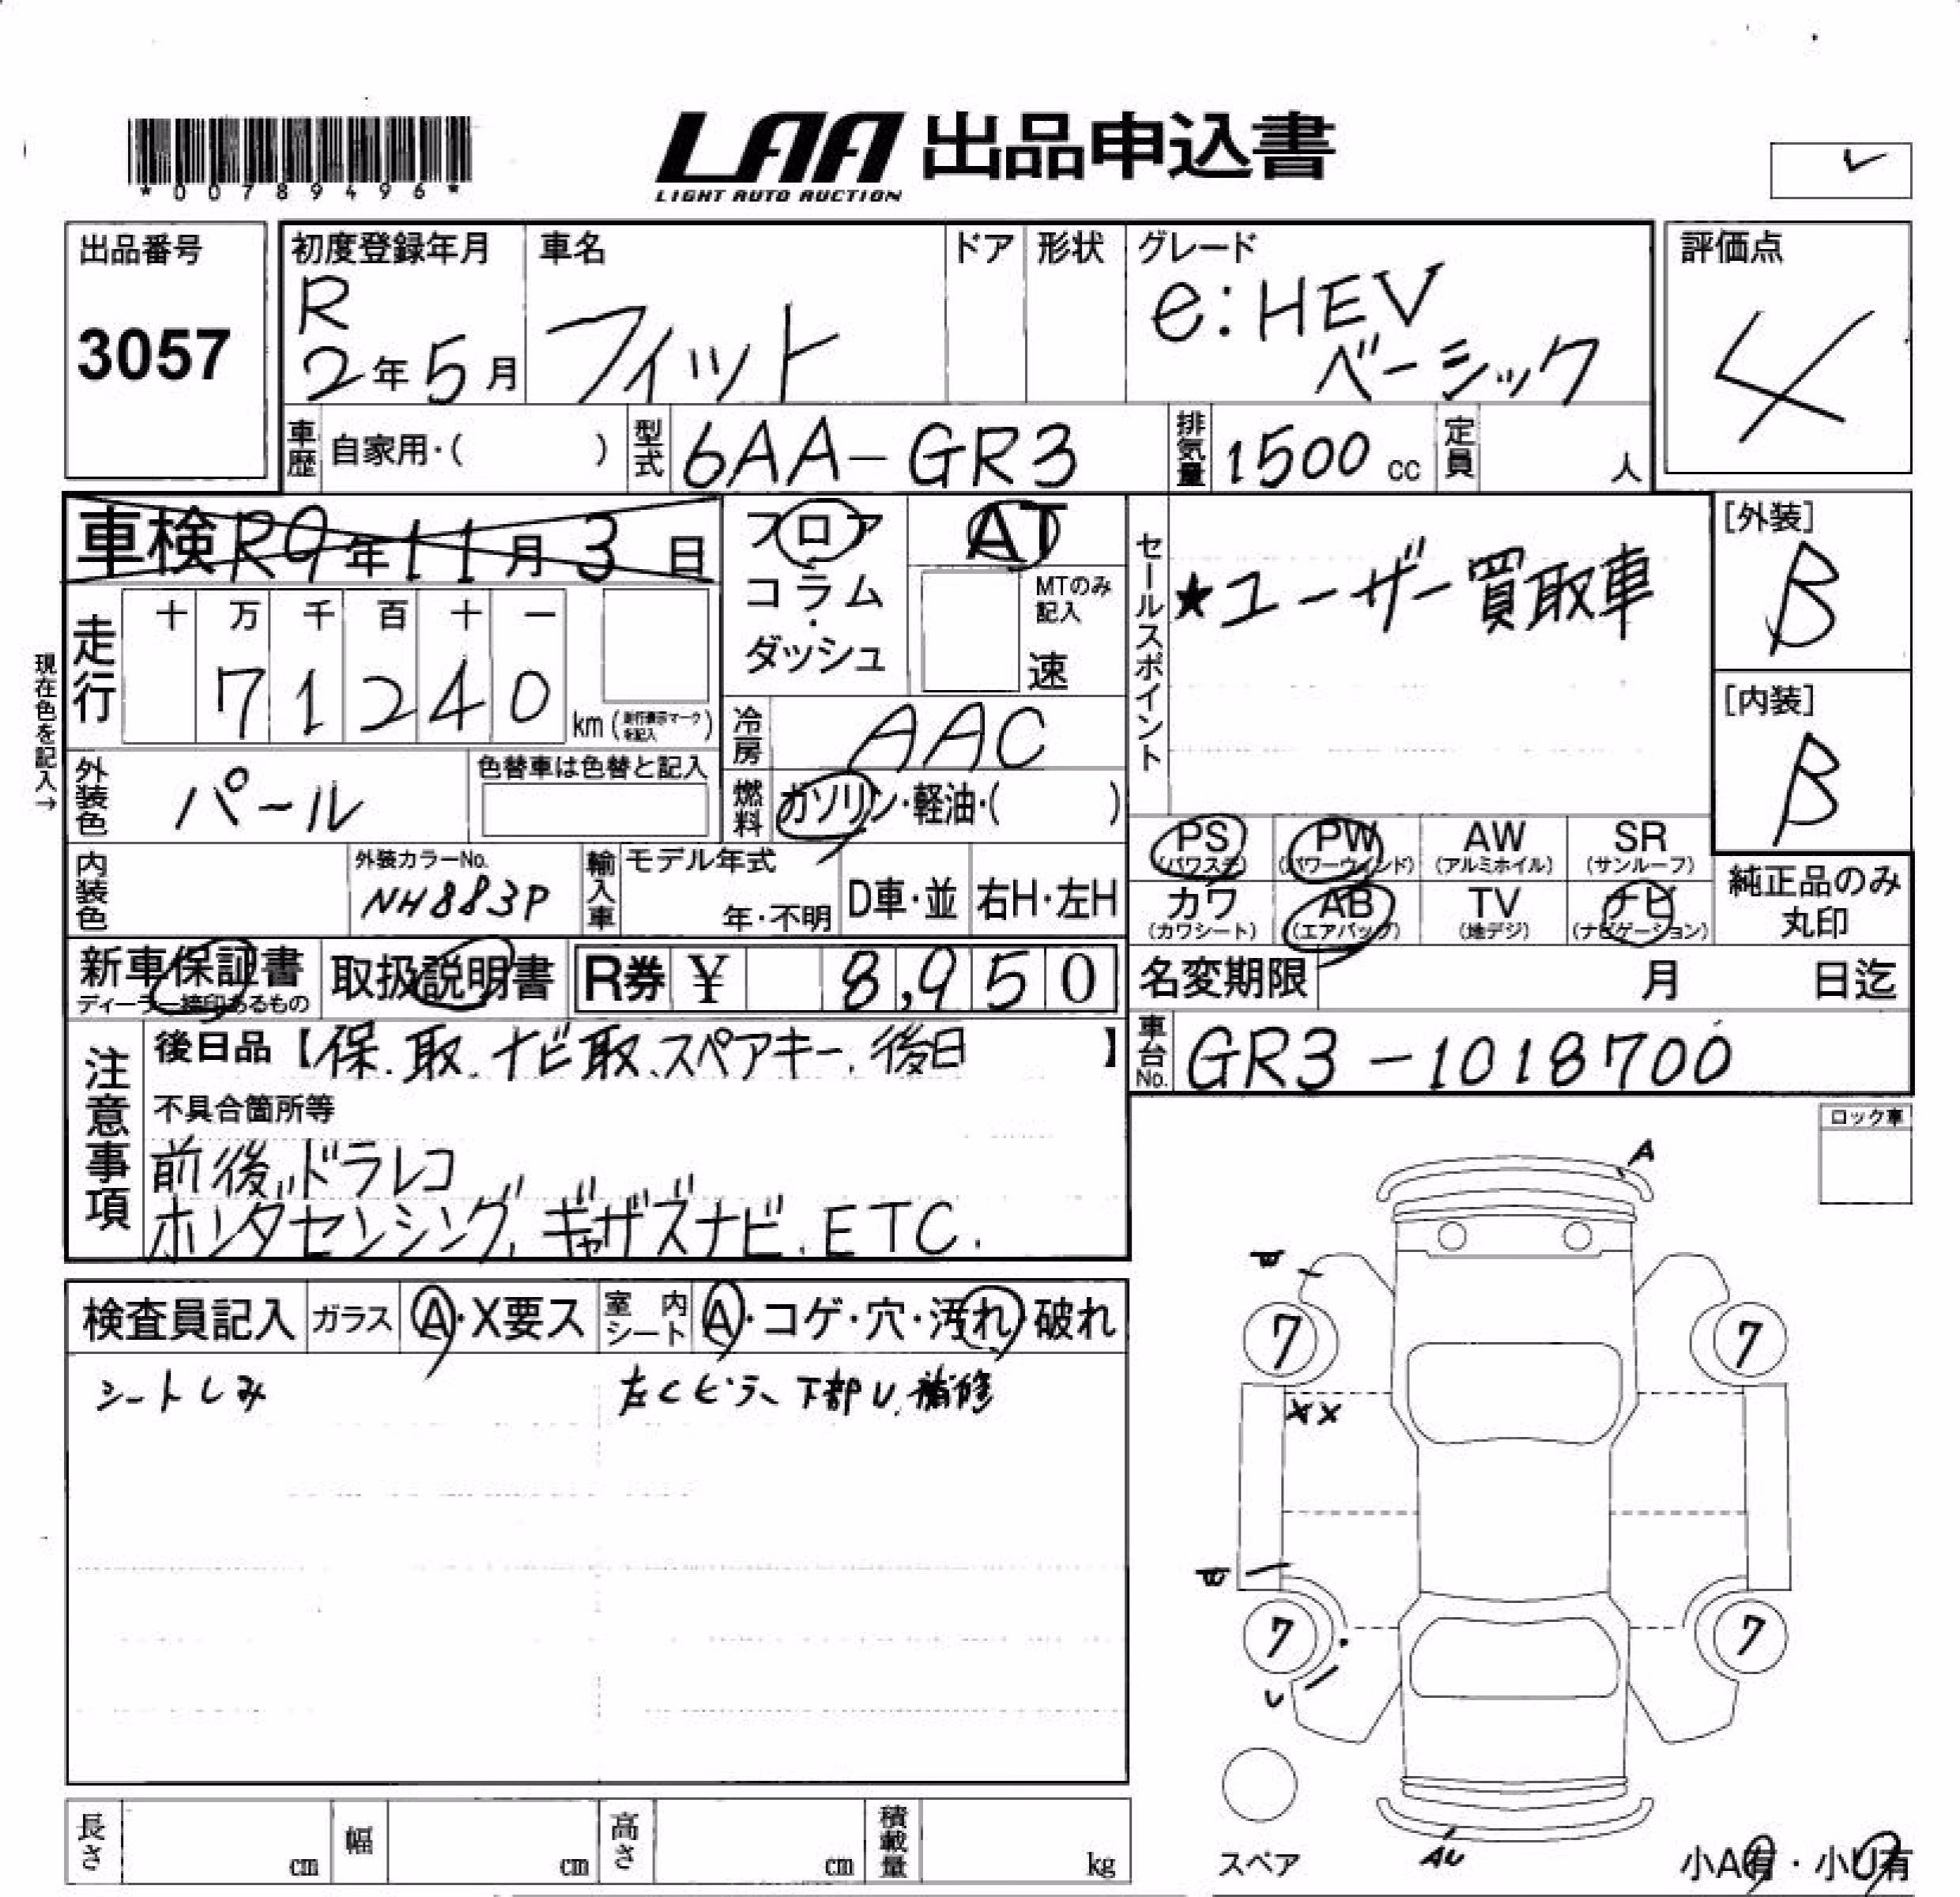 *00789496*
LAA 出品申込書
LIGHT AUTO AUCTION
出品番号
3057
初度登録年月
R
2年5月
車名
フィット
ドア
形状
グレード
e:HEV
ベーシック
評価点
4
車歴 自家用・( )
型式 6AA-GR3
排気量 1500cc
定員 人
車検 R9年11月3日
フロア
コラム
・
ダッシュ
AT
MTのみ
記入
速
セールスポイント
★ユーザー買取車
[外装]
B
[内装]
B
現在色を記入→
走行
十 万 千 百 十 一
7 1 2 4 0
km(走行表示マークを記入)
冷房 AAC
外装色 パール
色替車は色替と記入
燃料 ガソリン・軽油・( )
PS
(パワステ)
PW
(パワーウインド)
AW
(アルミホイル)
SR
(サンルーフ)
カワ
(カワシート)
AB
(エアバック)
TV
(地デジ)
ナビ
(ナビゲーション)
純正品のみ
丸印
内装色
外装カラーNo.
NH883P
輸入車
モデル年式
年・不明
D車・並
右H・左H
新車保証書
ディーラー捺印あるもの
取扱説明書
R券 ¥ 8,950
名変期限 月 日迄
車台No. GR3-1018700
注意事項
後日品【保.取.ナビ取.スペアキー.後日】
不具合箇所等
前後ドラレコ
ホンダセンシング.ギャザズナビ.ETC.
ロック車
検査員記入
ガラス A・X要ス
室内シート A・コゲ・穴・汚れ・破れ
シートしみ
左Cピラー下部U.補修
A
7
7
XX
7
7
U
スペア
AU
小A有・小U有
長さ cm
幅 cm
高さ cm
積載量 kg